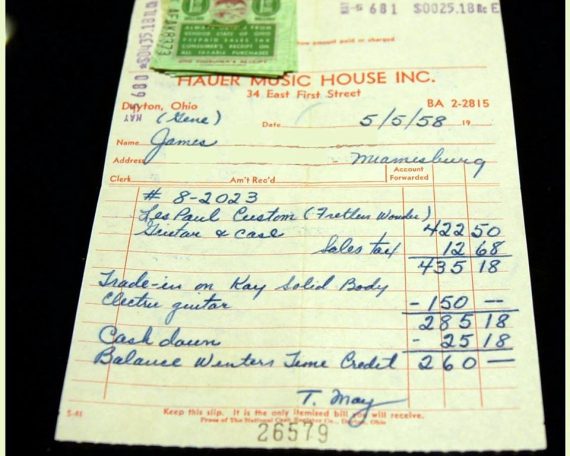 681 $0025.18
amount paid or charged
680 $0435.18
VENDOR STATE OF OHIO
PREPAID SALES TAX
CONSUMER'S RECEIPT ON
ALL TAXABLE PURCHASES
HAUER MUSIC HOUSE INC.
34 East First Street
Dayton, Ohio BA 2-2815
(Gene) Date 5/5/58 19
Name James
Address Miamesburg
Clerk Am't Rec'd Account Forwarded
# 8-2023
Les Paul Custom (Fretless Wonder)
Guitar & case 422 50
Sales tax 12 68
435 18
Trade-in on Kay Solid Body
Electric guitar - 150 —
285 18
Cash down - 25 18
Balance Winters Time Credit 260 —
T. May
5-81 Keep this slip. It is the only itemized bill you will receive.
Press of The National Cash Register Co., Dayton, Ohio
26579